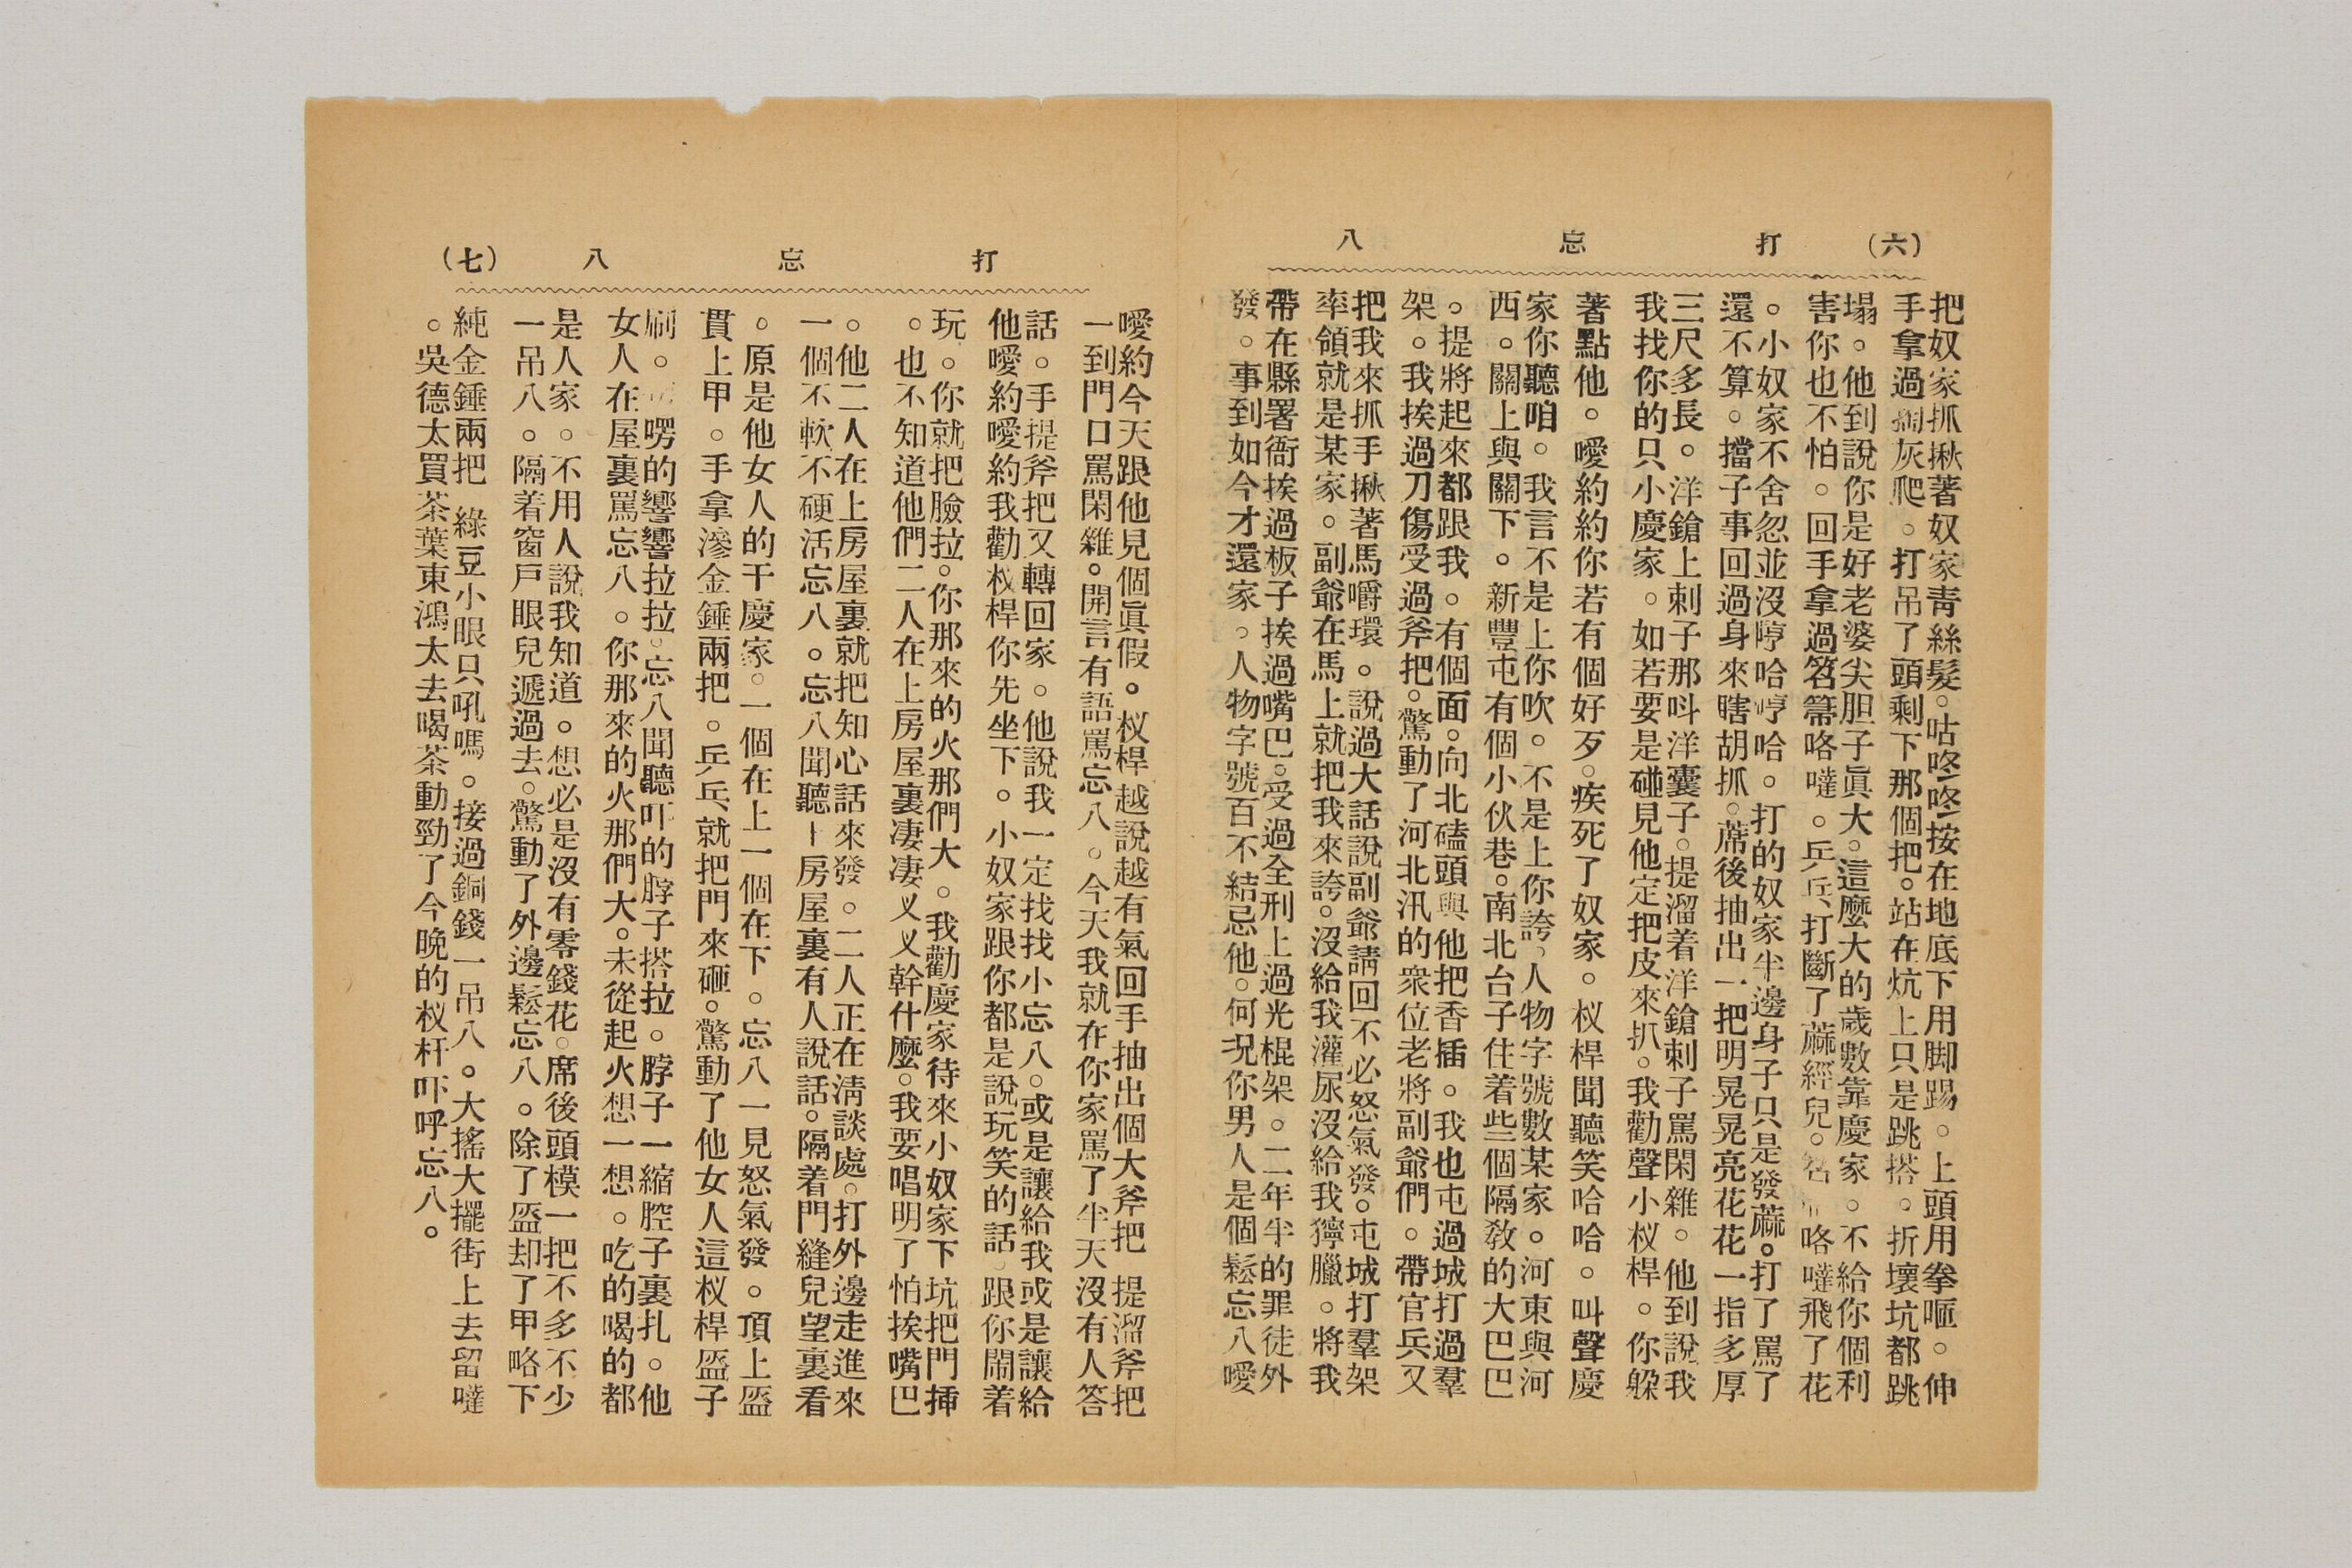 (六) 打忘八
把奴家抓揪著奴家靑絲髮。咕咚咚按在地底下用脚踢。上頭用拳哐。伸
手拿過掏灰爬。打吊了頭剩下那個把。站在炕上只是跳撘。折壞坑都跳
塌。他到說你是好老婆尖胆子眞大。這麼大的歲數靠慶家。不給你個利
害你也不怕。回手拿過笤箒咯噠。乒乓打斷了蔴經兒。笤咯噠飛了花
。小奴家不舍忽並沒哼哈哼哈。打的奴家半邊身子只是發蔴。打了罵了
還不算。擋子事回過身來瞎胡抓。蓆後抽出一把明晃晃亮花花一指多厚
三尺多長。洋鎗上刺子那呌洋囊子。提溜着洋鎗刺子罵閑雜。他到說我
我找你的只小慶家。如若要是碰見他定把皮來扒。我勸聲小杈桿。你躱
著點他。噯約約你若有個好歹。疾死了奴家。杈桿聞聽笑哈哈。叫聲慶
家你聽咱。我言不是上你吹。不是上你誇。人物字號數某家。河東與河
西。關上與關下。新豐屯有個小伙巷。南北台子住着些個隔敎的大巴巴
。提將起來都跟我。有個面。向北磕頭與他把香插。我也屯過城打過羣
架。我挨過刀傷受過斧把。驚動了河北汛的衆位老將副爺們。帶官兵又
把我來抓手揪著馬嚼環。說過大話說副爺請回不必怒氣發。屯城打羣架
率領就是某家。副爺在馬上就把我來誇。沒給我灌尿沒給我獰臘。將我
帶在縣署衙挨過板子挨過嘴巴。受過全刑上過光棍架。二年半的罪徒外
發。事到如今才還家。人物字號百不結忌他。何況你男人是個鬆忘八噯
打忘八 (七)
噯約今天跟他見個眞假。杈桿越說越有氣回手抽出個大斧把 提溜斧把
一到門口罵閑雜。開言有語罵忘八。今天我就在你家罵了半天沒有人答
話。手提斧把又轉回家。他說我一定找找小忘八。或是讓給我或是讓給
他噯約噯約我勸杈桿你先坐下。小奴家跟你都是說玩笑的話。跟你鬧着
玩。你就把臉拉。你那來的火那們大。我勸慶家待來小奴家下坑把門揷
。也不知道他們二人在上房屋裏凄凄乂乂幹什麼。我要唱明了怕挨嘴巴
。他二人在上房屋裏就把知心話來發。二人正在淸談處。打外邊走進來
一個不軟不硬活忘八。忘八聞聽上房屋裏有人說話。隔着門縫兒望裏看
。原是他女人的干慶家。一個在上一個在下。忘八一見怒氣發。頂上盔
貫上甲。手拿滲金錘兩把。乒乓就把門來砸。驚動了他女人這杈桿盔子
刷。啷的響響拉拉。忘八聞聽吓的脖子搭拉。脖子一縮腔子裏扎。他
女人在屋裏罵忘八。你那來的火那們大。未從起火想一想。吃的喝的都
是人家。不用人說我知道。想必是沒有零錢花。席後頭模一把不多不少
一吊八。隔着窗戸眼兒遞過去。驚動了外邊鬆忘八。除了盔却了甲略下
純金錘兩把 綠豆小眼只吼嗎。接過銅錢一吊八。大搖大擺街上去留噠
。吳德太買茶葉東鴻太去喝茶動勁了今晚的杈杆吓呼忘八。